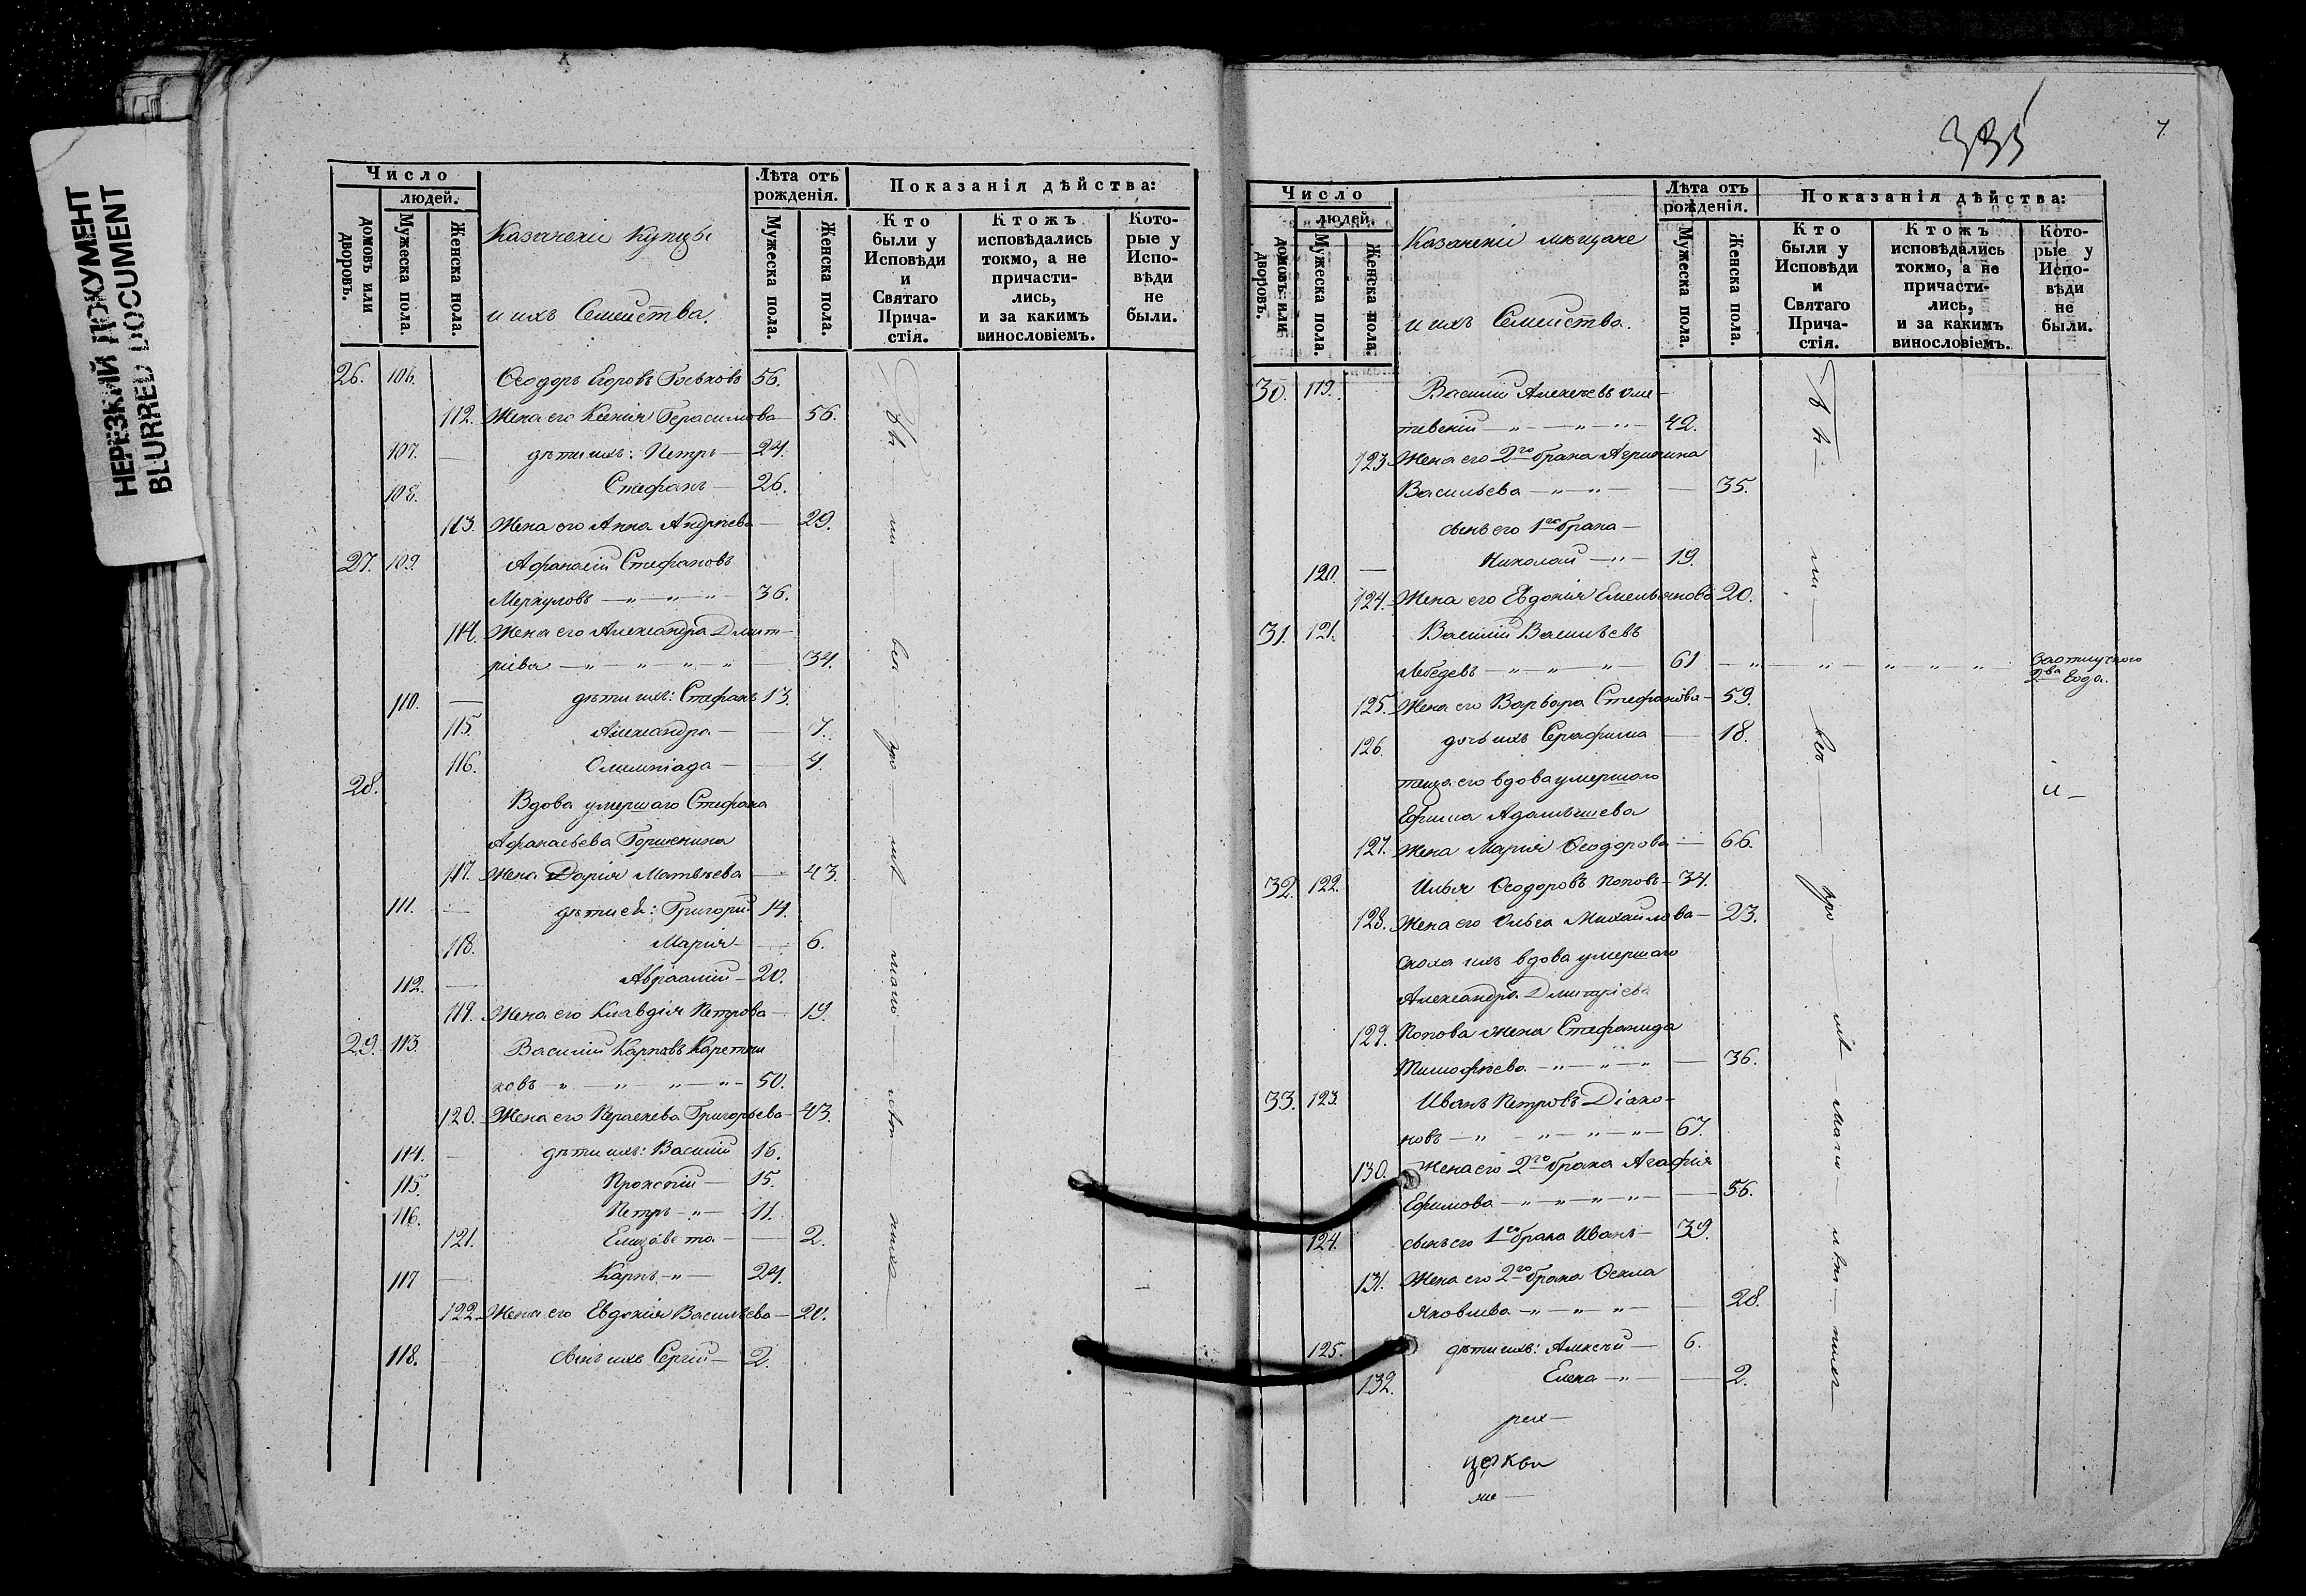 НЕРЕЗКИЙ ДОКУМЕНТ
BLURRED DOCUMENT
Число
людей.
домовъ или дворовъ.
Мужеска пола.
Женска пола.
Казанскіе купцы
и ихъ Семейства.
Лѣта отъ рожденія.
Мужеска пола.
Женска пола.
Показанія дѣйства:
Кто были у Исповѣди и Святаго Прича-стія.
Ктожъ исповѣдались токмо, а не причасти-лись, и за какимъ винословіемъ.
Кото-рые у Испо-вѣди не были.
26. 106. Ѳеодоръ Егоровъ 56.
112. Жена его Ксенія Герасимова 56.
107. — дѣти ихъ: Петръ — 24.
108. Стефанъ — 26.
113. Жена его Анна Андреева — 29.
27. 109. Афанасій Стефановъ
Меркуловъ — „ — „ — „ 36.
114. Жена его Александра Дмит-
ріева — „ — „ — „ — „ 34.
110. — дѣти ихъ: Стефанъ 13.
115. Александра — 7.
116. Олимпіада — 4.
28. Вдова умершаго Стефана
Афанасьева Горшенина
117. Жена Дарія Матвѣева — 43.
111. — дѣти ей: Григорій 14.
118. Марія — 6.
112. — Авраамій — 20.
119. Жена его Клавдія Петрова — 19.
29. 113. Василій Карповъ Каретни
ковъ — „ — „ — „ — „ — 50.
120. Жена его Параскева Григорьева — 43.
114. — дѣти ихъ: Василій 16.
115. Прокопій — 15.
116. Петръ — „ — 11.
121. Елизавета — 2.
117 — Карпъ — „ — 24.
122. Жена его Евдокія Васильева — 20.
118. — сынъ ихъ Сергій — 2.
335
7.
Число
людей.
домовъ или дворовъ.
Мужеска пола.
Женска пола.
Казанскіе мѣщане
и ихъ Семейства.
Лѣта отъ рожденія.
Мужеска пола.
Женска пола.
Показанія дѣйства:
Кто были у Исповѣди и Святаго Прича-стія.
Ктожъ исповѣдались токмо, а не причасти-лись, и за какимъ винословіемъ.
Кото-рые у Испо-вѣди не были.
30. 119. Василій Алексеевъ
42.
123. Жена его 2го брака Агрипина
Васильева — „ — „ — 35.
сынъ его 1го брака —
120. — Николай — „ — 19.
124. Жена его Евдокія Емельянова 20.
31. 121. Василій Васильевъ
Лебедевъ — „ — „ — „ — 61 — „ — „ — „ — „ — „ За отлучкою
2ва Года.
125. Жена его Варвара Стефанова — 59.
126. дочь ихъ Серафима — 18.
теща его вдова умершаго
Ефима Адамышева
127. Жена Марія Ѳеодорова — 66.
32. 122. Илья Ѳеодоровъ Поповъ — 34.
128. Жена его Ольга Михайлова — 23.
сноха ихъ вдова умершаго
Александра Дмитріева
129. Попова жена Стефанида
Тимофѣева — „ — „ — „ — 36.
33. 123. Иванъ Петровъ Діако-
новъ — „ — „ — „ — „ — 67.
130. Жена его 2го брака Агафія
Ефимова — „ — „ — „ — „ — 56.
124. сынъ его 1го брака Иванъ — 39.
131. Жена его 2го брака Ѳекла
Яковлева — „ — „ — „ — 28.
125. дѣти ихъ: Алексѣй — 6.
132. Елена — „ — 2.
церкви